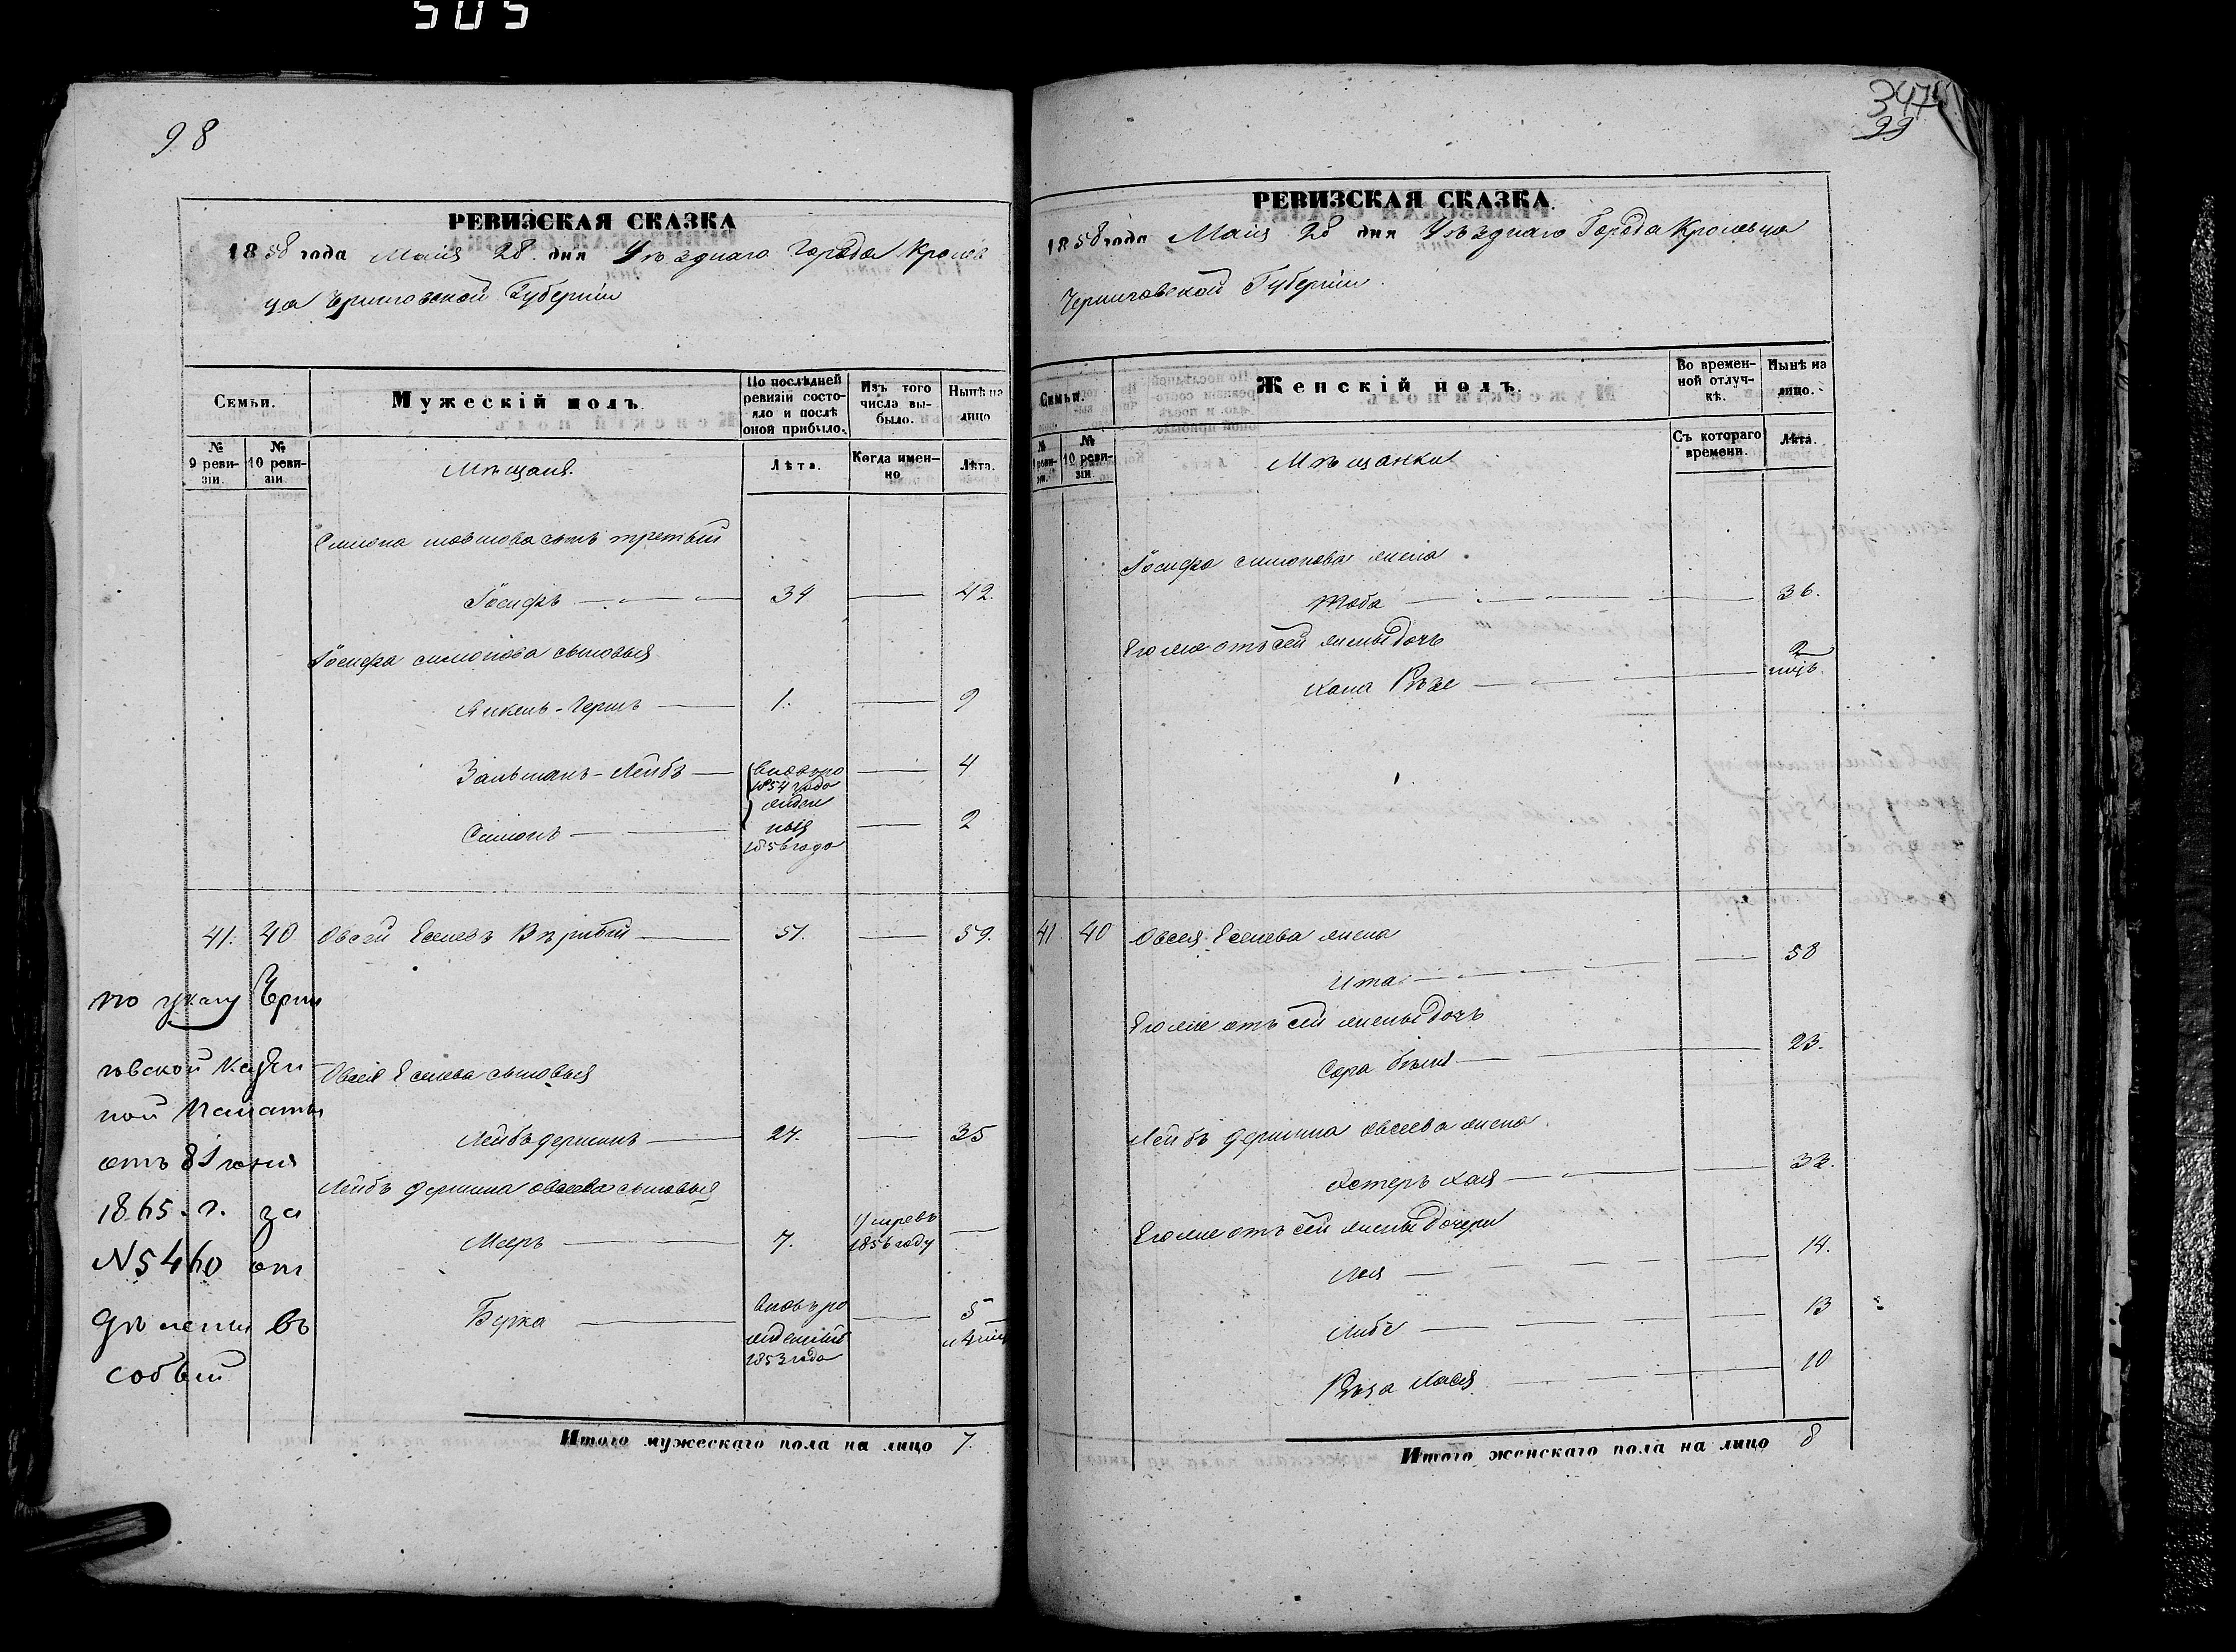 505
98
РЕВИЗСКАЯ СКАЗКА
1858 года Маія 28 дня Уезднаго Города Кролев
ца Черниговской Губерніи
Семьи.
Мужескій полъ.
По послѣдней ревизіи состояло и послѣ оной прибыло.
Изъ того числа выбыло.
Нынѣ на лицо
№ 9 ревизіи.
№ 10 ревизіи
Мѣщаня.
Лѣта.
Когда именно
Лѣта.
Симона сынъ третьий
Іосифъ 34 42.
Іосифа симонова сыновья
Янкель-Гершъ 1. 9
Зальманъ-Лейбъ 4
вновьро
1854 года
жден
ныя
1856 года
Симонъ 2
41. 40 Овсей Еселевъ 51. 59.
по указу Черни
говской Казен
ной Палаты
отъ 31 юнія
1865. г. за
№ 5460 от
дѣлены въ
собъи
Овсея Еселева сыновья
Лейбъ дершинъ 27. 35
Лейбъ дершина овсеева сыновья
Мееръ 7. умревъ 1856 году
Берка вновь ро
жденный
1853 года
5
Итого мужескаго пола на лицо 7.
347
99
РЕВИЗСКАЯ СКАЗКА
1858 года Маія 28 дня Уезднаго Города Кролевца
Черниговской Губерніи.
Семьи.
Женскій полъ.
Во временной отлучкѣ.
Нынѣ на лицо.
№ 9 ревизіи.
№ 10 ревизіи.
Мѣщанки
Съ котораго времени.
Лѣта.
Іосифа симонова жена
Тоба 36.
Его же отъ сей жены дочь
Хана 2
41 40 Овсея Еселева жена
Ита 58
Его же отъ сей жены дочь
Сора 23.
Лейбъ дершина овсеева жена.
Хая 32.
Его же отъ сей жены дочери
Лея 14.
Либе 13
Хася 10
Итого женскаго пола на лицо 8